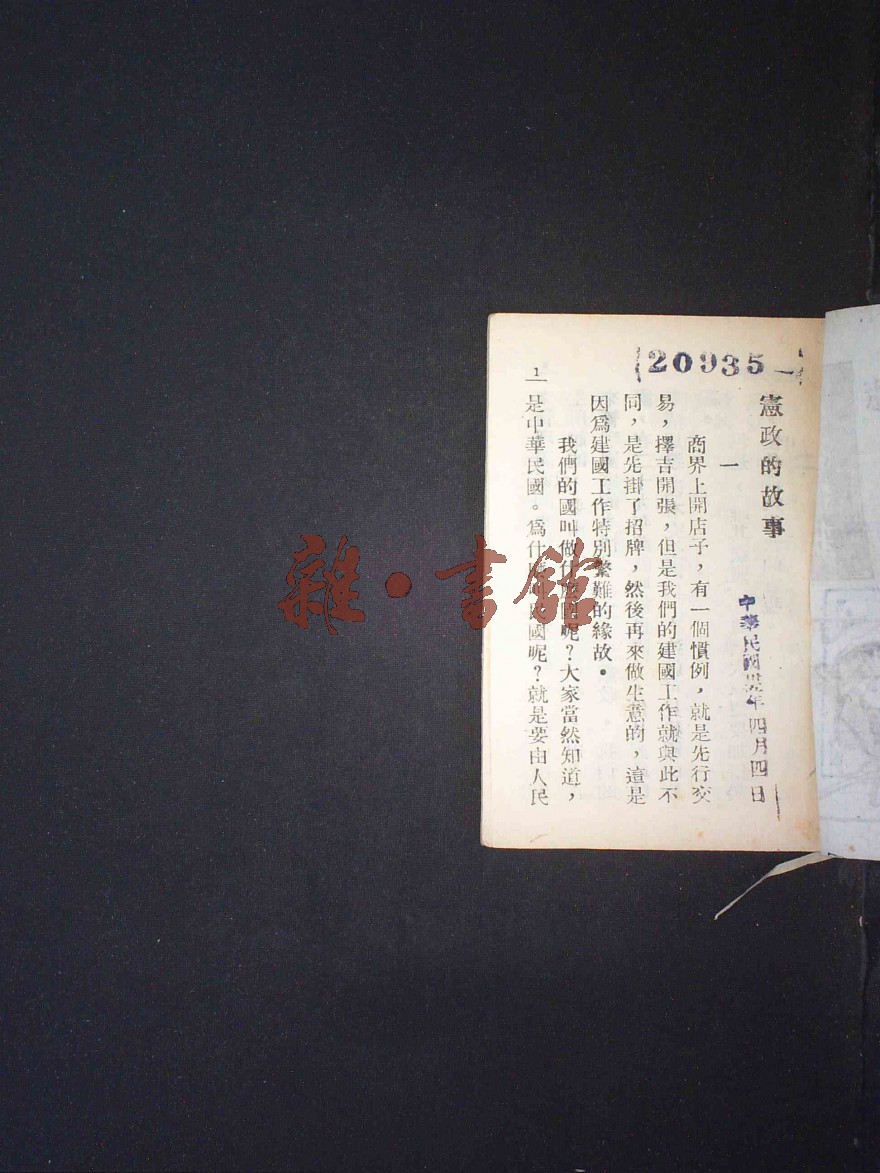 20935
憲政的故事
中華民國卅五年四月四日
一
商界上開店子，有一個慣例，就是先行交
易，擇吉開張，但是我們的建國工作就與此不
同，是先掛了招牌，然後再來做生意的，這是
因爲建國工作特別繁難的緣故。
我們的國叫做什麼國呢？大家當然知道，
是中華民國。爲什麼叫民國呢？就是要由人民
1
雜·書館